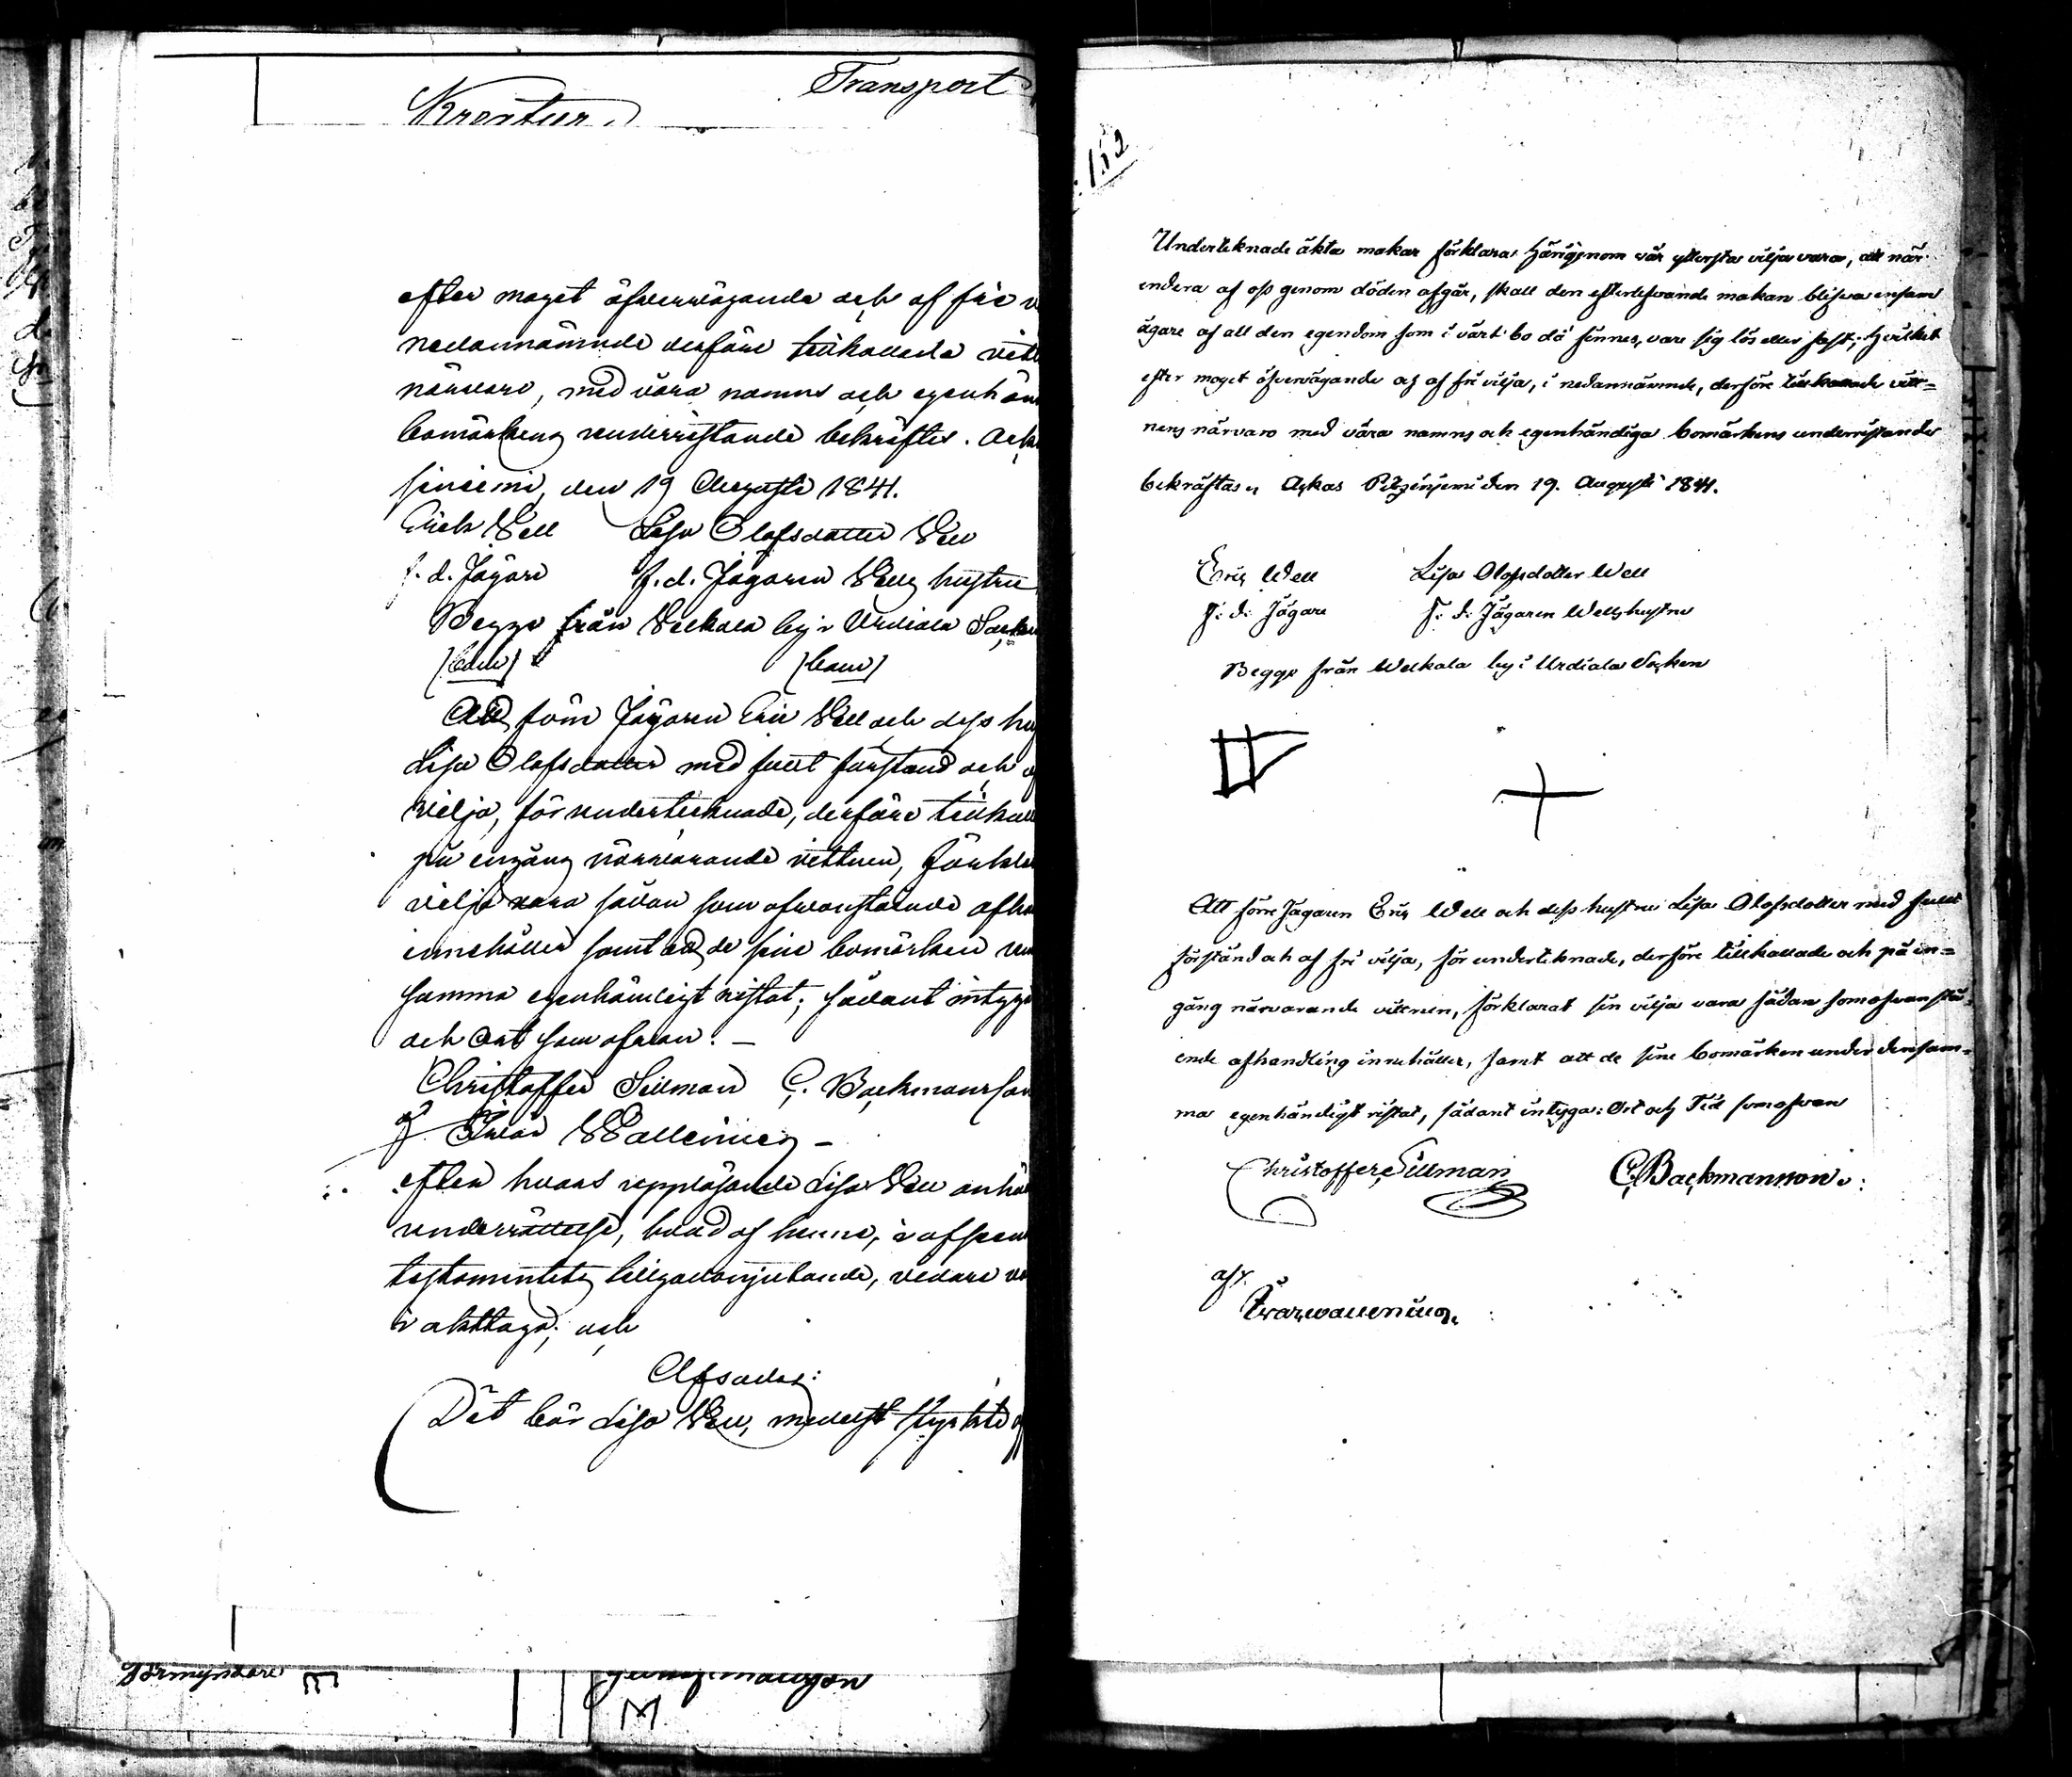 Transport
efter moget öfvervägande och af fri
nedannämnde derföre tillkallade
närvaro, med våra namns och egenhän
bomärkens underristande bekräftes.
den 19 Augusti 1841.
Erick Well Lisa Olofsdotter Well
f. d. Jägare f. d. Jägaren Wells hustru
Begge från Welkala by i Urdiala Sock
(bom) (bom)
Att förre Jägaren Eric Well och dess hu
Lisa Olofsdotter med fullt förstånd och
vilja, för undertecknade, derföre tillkal
på engång närvarande vittnen, förkla
vilja vara sådan som ofvanstående afha
innehåller samt att de sine bomärken un
samma egenhändigt ristat; sådant intyga
och ort som ofvan. —
Christoffer Sillman C. Backmansson
Ivar Wallenius —
efter hvars uppläsande Lisa Well anhö
underrättelse, hvad af henne, i afseen
testamentets tillgodonjutande, vidare
i akttagas; och
Afsades:
Det bör Lisa Well, medelst
Förmyndare
152
Underteknade äkta makar förklara härigenom vår yttersta vilja vara, att när
endera af oss genom döden afgår, skall den efterlefvande makan blifva ensam
ägare af all den egendom som i vårt bo då finnes, vare sig lös eller fast; hvilket
efter moget öfvervägande och af fri vilja, i nedannämnde, derföre tillkallade vitt=
nens närvaro med våra namns och egenhändiga bomärkens underristande
bekräftas, Ackas den 19. Augusti 1841.
Eric Well Lisa Olofsdotter Well
F: d: Jägare F: d: Jägaren Wells hustru
Begge från Welkala by i Urdiala Socken
Att förre Jägaren Eric Well och dess hustru Lisa Olofsdotter med fullt
förstånd och af fri vilja, för underteknade, derföre tillkallade och på en=
gång närvarande vittnen, förklarat sin vilja vara sådan som ofvanstå=
ende afhandling innehåller, samt att de sine bomärken under densam=
ma egenhändigt ristat, sådant intyga: Ort och Tid som ofvan
Christoffer Sillman C. Backmansson:
Ivar Wallenius.